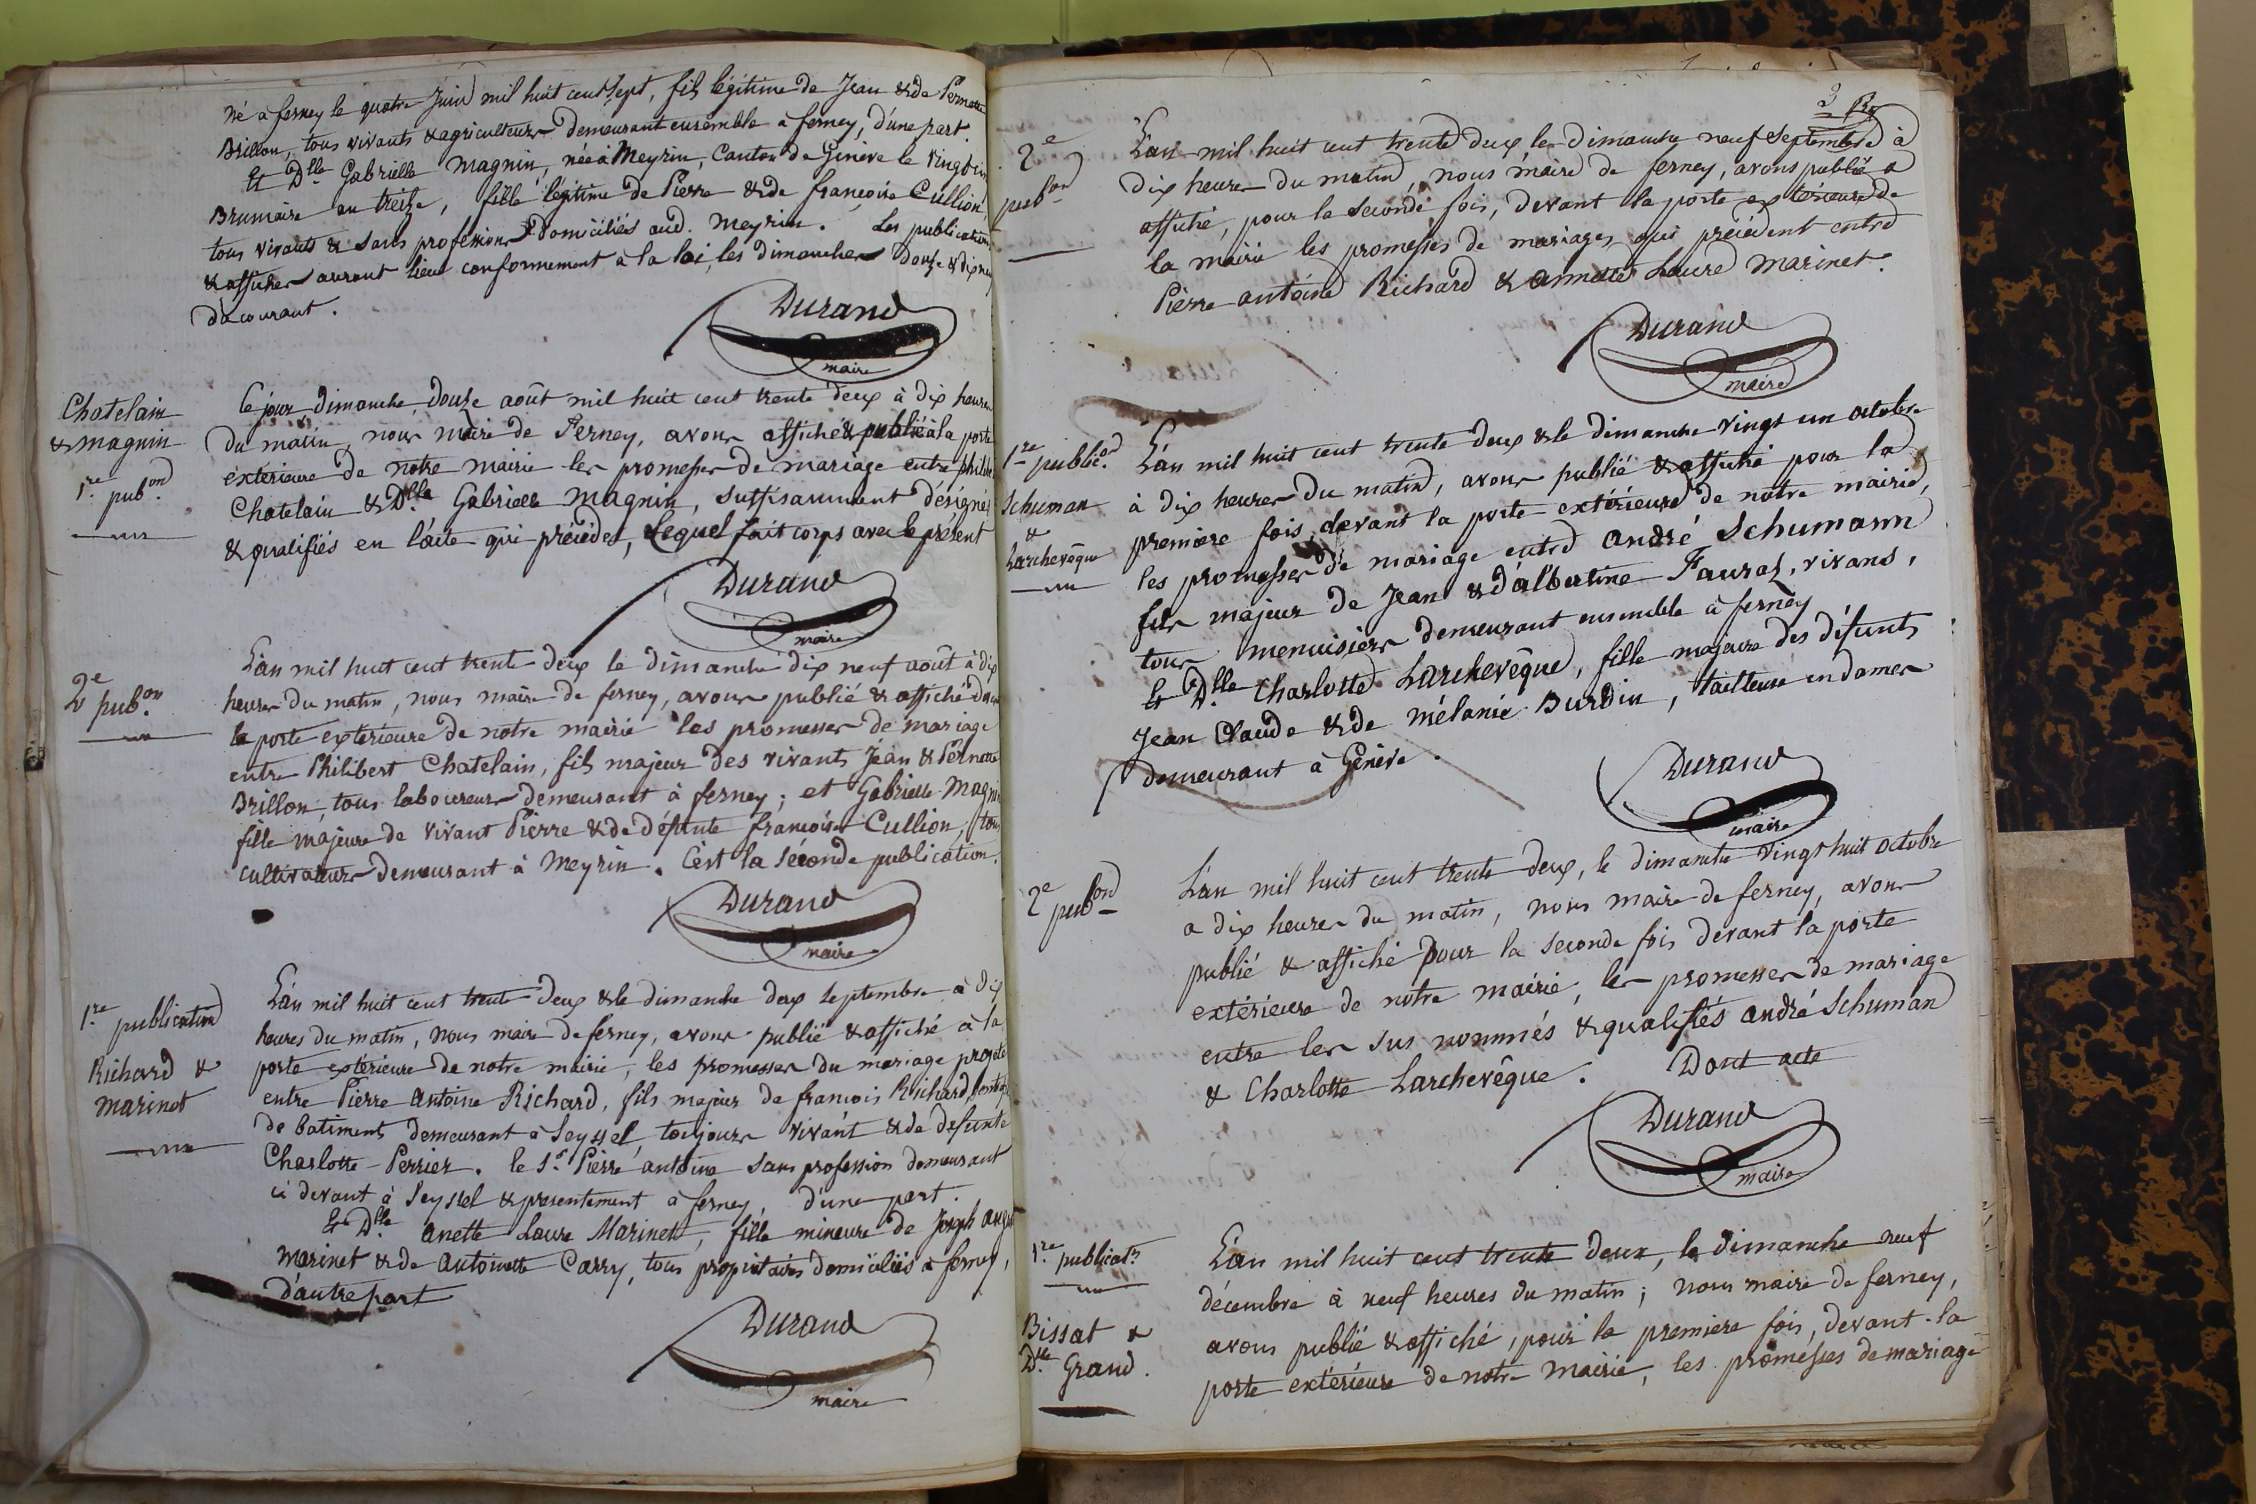 né à ferney le quatre Juin mil huit cent sept, fils légitime de Jean & de Pernette
Brillon, tous vivants & agriculteurs demeurant ensemble à ferney, d'une part.
Et Dlle Gabrielle Magnin, née à Meyrin, Canton de Genève le Vingt
Brumaire an treize, fille légitime de Pierre & de françoise Cullion
tous vivants & sans profession domiciliés aud. Meyrin. Les publications
& affiches auront lieu conformement à la loi, les dimanches douze & dix neuf
du courant.
Durand
maire
Chatelain
& magnin
1re pubon.
Ce jour dimanche, douze août mil huit cent trente deux à dix heures
du matin, nous maire de Ferney, avons affiché & publié à la porte
exterieure de notre mairie les promesses de mariage entre philibert
Chatelain & Dlle Gabrielle Magnin, suffisamment désignés
& qualifiés en l'acte qui précède, lequel fait corps avec le présent
Durand
maire
2e pubon.
L'an mil huit cent trente deux le dimanche dix neuf août à dix
heures du matin, nous maire de ferney, avons publié & affiché devant
la porte extérieure de notre mairie les promesses de mariage
entre Philibert Chatelain, fils majeur des vivants Jean & Pernette
Brillon, tous laboureurs demeurant à ferney; et Gabrielle Magnin
fille majeure de vivant Pierre & de défunte françoise Cullion, tous
cultivateurs demeurant à Meyrin. C'est la séconde publication.
Durand
maire
1re publication
Richard &
Marinet
L'an mil huit cent trente deux & le dimanche deux septembre à dix
heures du matin, nous maire de ferney, avons publié & affiché à la
porte extérieure de notre mairie, les promesses du mariage projeté
entre Pierre Antoine Richard, fils majeur de francois Richard,
de batiments demeurant à Seyssel, toujours vivant & de defunte
Charlotte Perrier. le Sr. Pierre antoine sans profession demeurant
ci devant à Seyssel & presentement à ferney d'une part.
Et Dlle Anette Laure Marinet, fille mineure de Joseph
Marinet & de Antoinette Carry, tous propriétaires domiciliés à ferney,
d'autre part
Durand
maire
3
2e
pubon
L'an mil huit cent trente deux le dimanche neuf Septembre à
dix heures du matin, nous maire de ferney, avons publié &
affiché, pour la seconde fois, devant la porte extérieure de
la mairie les promesses de mariages qui précédent entre
Pierre antoine Richard & annette Laure Marinet.
Durand
maire
1re publicon.
Schuman
&
Larchevêque
L'an mil huit cent trente deux & le dimanche vingt un octobre
à dix heures du matin, avons publié & affiché pour la
première fois, devant la porte extérieure de notre mairie,
les promesses de mariage entre André Schumann
fils majeur de Jean & d'albertine Fauraz, vivans,
tous menuisiers demeurant ensemble à ferney
Et Dlle Charlotte Larchevêque, fille majeure des défunts
Jean Claude & de Mélanie Burdin, tailleuse en dames
demeurant à Genève.
Durand
maire
2e pubon
L'an mil huit cent trente deux, le dimanche vingt huit octobre
a dix heures du matin, nous maire de ferney, avons
publié & affiché pour la seconde fois devant la porte
extérieure de notre mairie, les promesses de mariage
entre les sus nommés & qualifiés André Schuman
& Charlotte Larchevêque. Dont acte
Durand
maire
1re publicatn
Bissat &
Dlle Grand.
L'an mil huit cent trente deux, le dimanche neuf
décembre à neuf heures du matin; nous maire de ferney,
avons publié & affiché, pour la premiere fois, devant la
porte extérieure de notre Mairie, les promesses de mariage